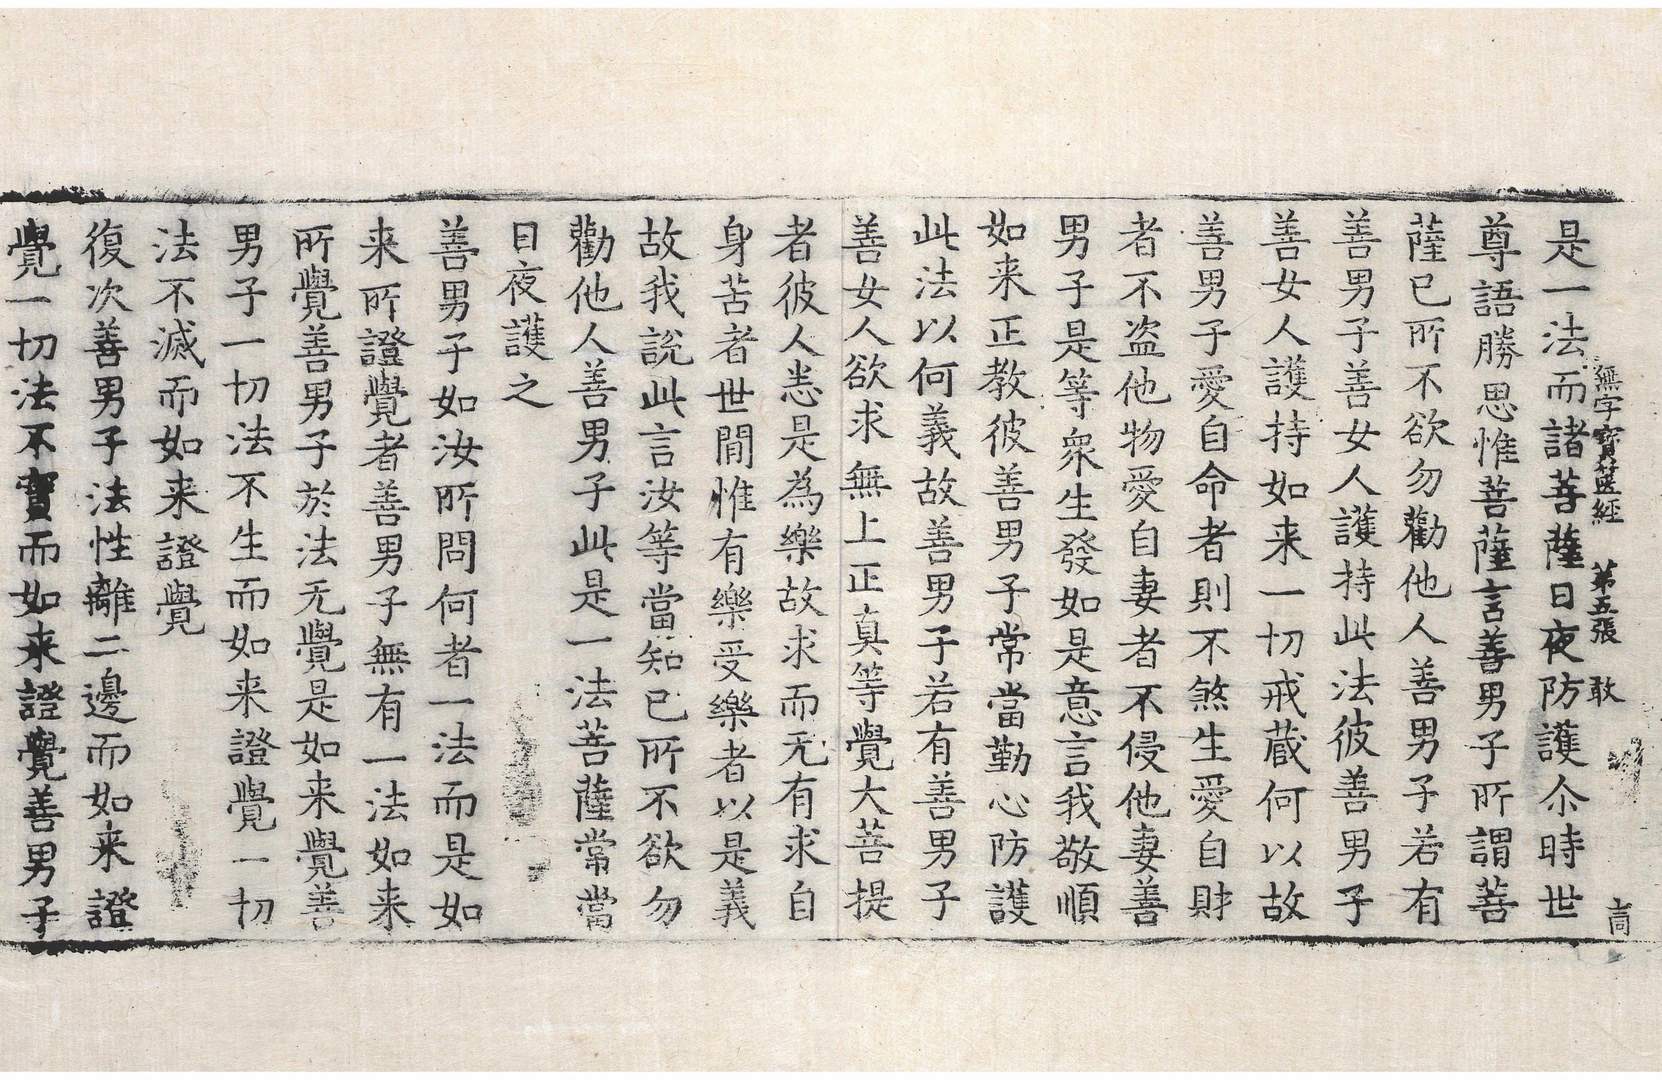 無字寶篋經 第五張 敢
是一法而諸菩薩日夜防護尒時世
尊語勝思惟菩薩言善男子所謂菩
薩已所不欲勿勸他人善男子若有
善男子善女人護持此法彼善男子
善女人護持如来一切戒蔵何以故
善男子愛自命者則不煞生愛自財
者不盗他物愛自妻者不侵他妻善
男子是等衆生發如是意言我敬順
如来正教彼善男子常當勤心防護
此法以何義故善男子若有善男子
善女人欲求無上正真等覺大菩提
者彼人悉是為樂故求而无有求自
身苦者世間惟有樂受樂者以是義
故我說此言汝等當知已所不欲勿
勸他人善男子此是一法菩薩常當
日夜護之
善男子如汝所問何者一法而是如
来所證覺者善男子無有一法如来
所覺善男子於法无覺是如来覺善
男子一切法不生而如来證覺一切
法不滅而如来證覺
復次善男子法性離二邊而如来證
覺一切法不實而如来證覺善男子